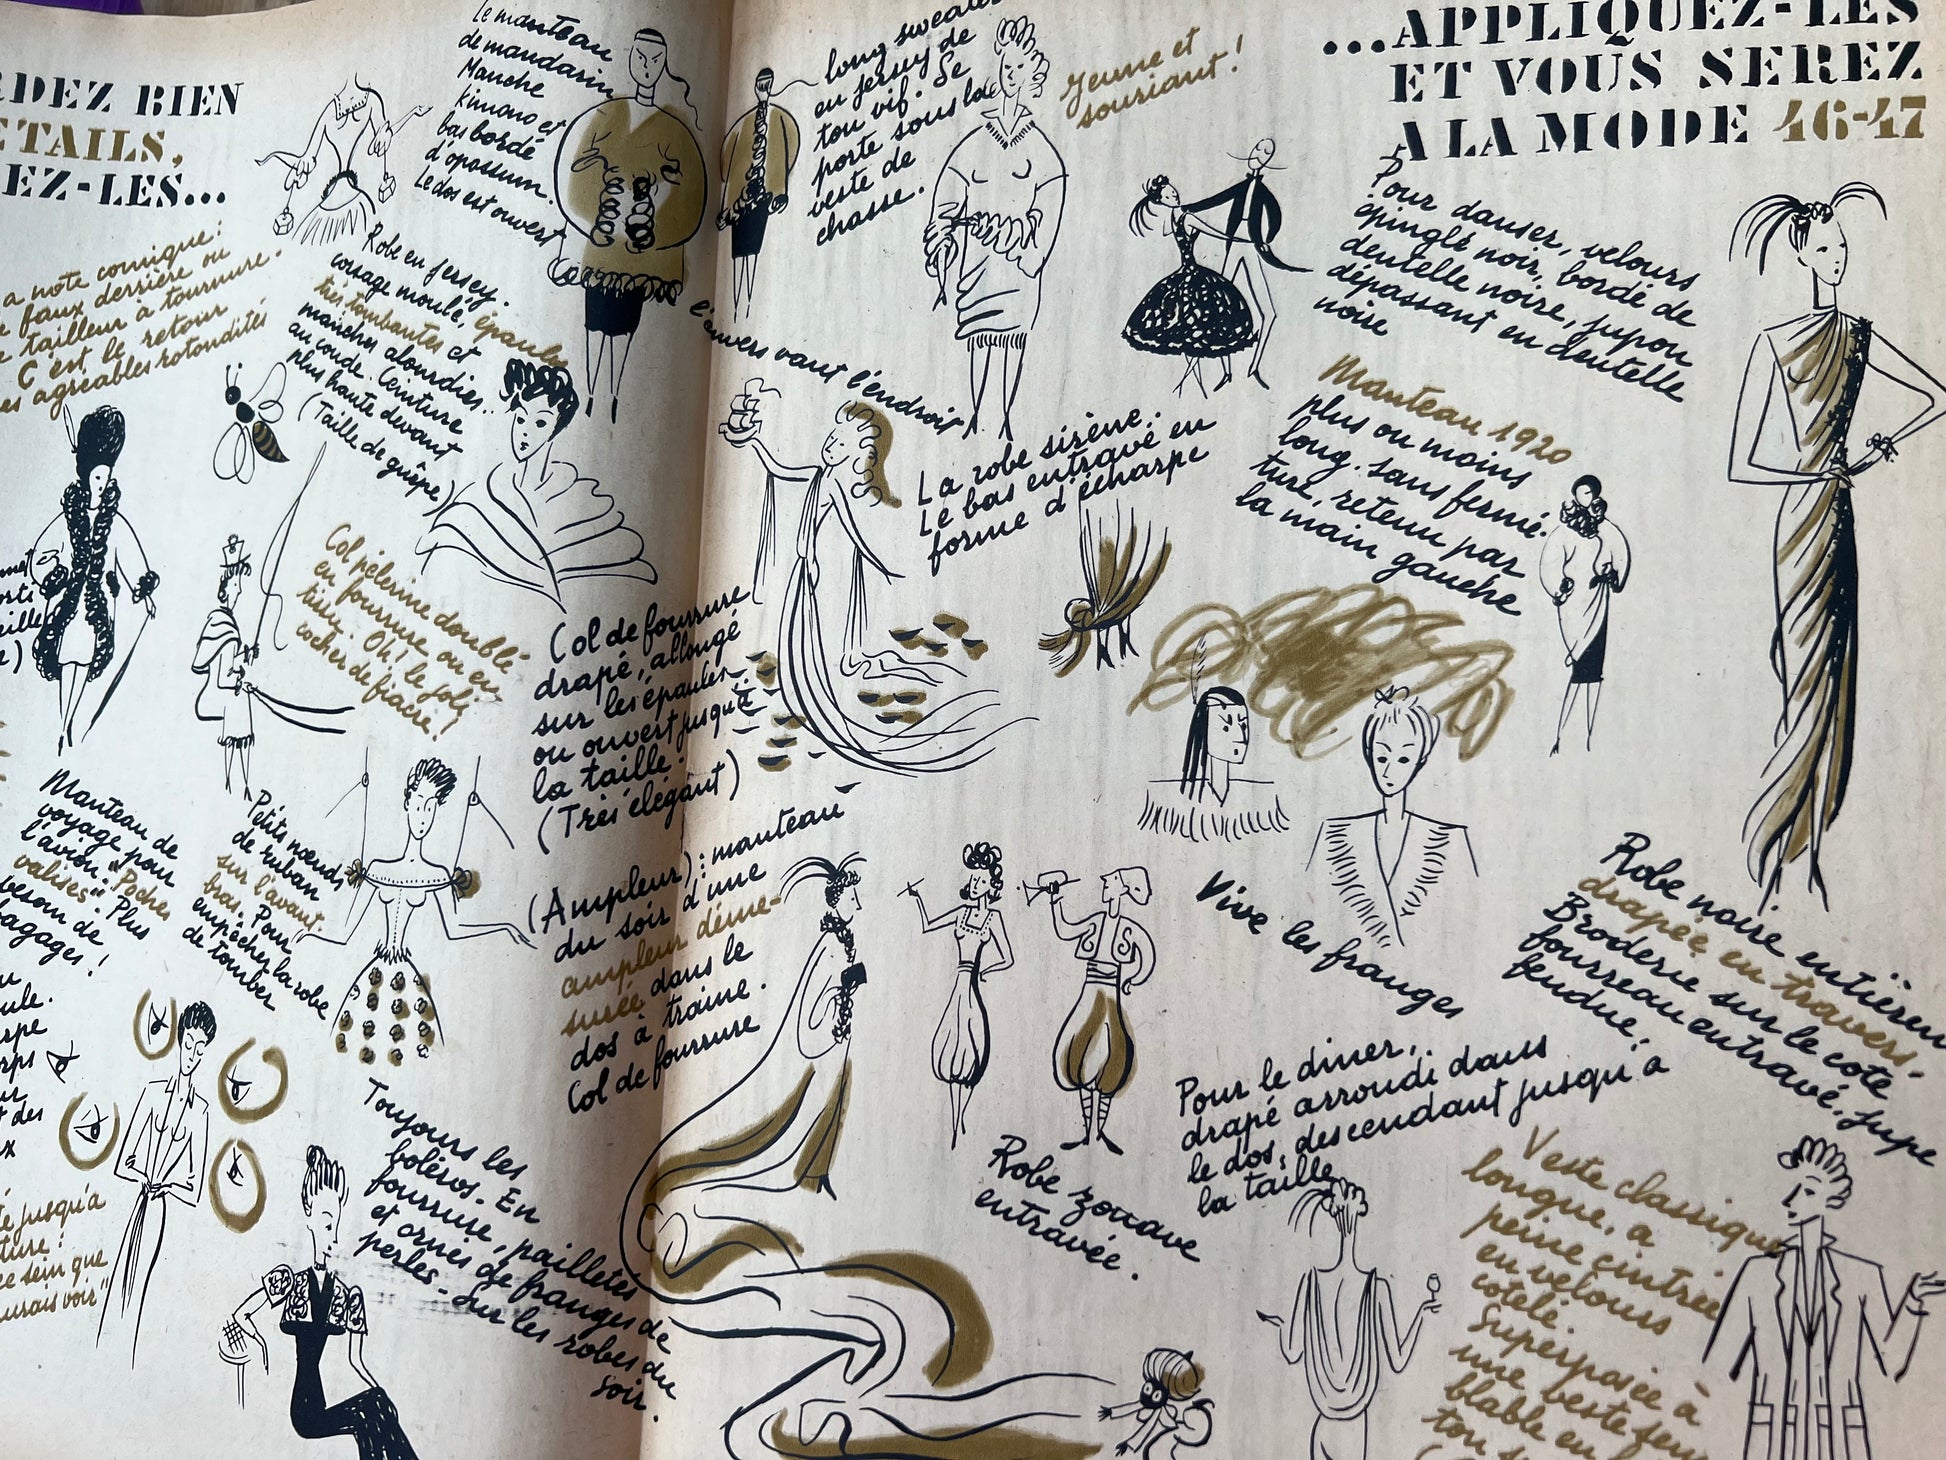 RDEZ BIEN
ETAILS,
EZ-LES...
...APPLIQUEZ-LES
ET VOUS SEREZ
A LA MODE 46-47
a note comique:
faux derrière ou
tailleur à tournure.
C'est le retour
es agréables rotondités
Le manteau
de mandarin
Manche
kimono et
bas bordé
d'opossum.
Le dos est ouvert
l'envers vaut l'endroit
Robe en jersey.
corsage moulé, épaules
très tombantes et
manches alourdies
au coude. Ceinture
plus haute devant
(Taille de guêpe)
long sweater
en jersey de
ton vif. Se
porte sous la
veste de
chasse.
Jeune et
souriant!
Pour danser, velours
épinglé noir, bordé de
dentelle noire, jupon
dépassant en dentelle
noire
Manteau 1920
plus ou moins
long. sans ferme-
ture, retenu par
la main gauche
La robe sirène.
Le bas entravé en
forme d'écharpe
Col pèlerine doublé
en fourrure ou en
tissu. Oh! le joli
cocher de fiacre!
Col de fourrure
drapé, allongé
sur les épaules
ou ouvert jusqu'à
la taille.
(Très élégant)
Manteau de
voyage pour
l'avion. "Poches
valises". Plus
besoin de
bagages!
Petits nœuds
de ruban
sur l'avant-
bras. Pour
empêcher la robe
de tomber
(Ampleur): manteau
du soir d'une
ampleur déme-
surée dans le
dos à traine.
Col de fourrure
Vive les franges
Robe noire entièrem
drapée en travers.
Broderie sur le côté
fourreau entravé. Jupe
fendue.
Robe zouave
entravée.
Pour le diner,
drapé arrondi dans
le dos, descendant jusqu'à
la taille
Toujours les
boléros. En
fourrure, pailletés
et ornés de franges de
perles - Sur les robes du
soir.
té jusqu'à
ture:
ce sein que
urais voir"
Veste classique
longue, à
peine cintrée
en velours
cotelé.
Superposée à
une veste sem
blable en
ton